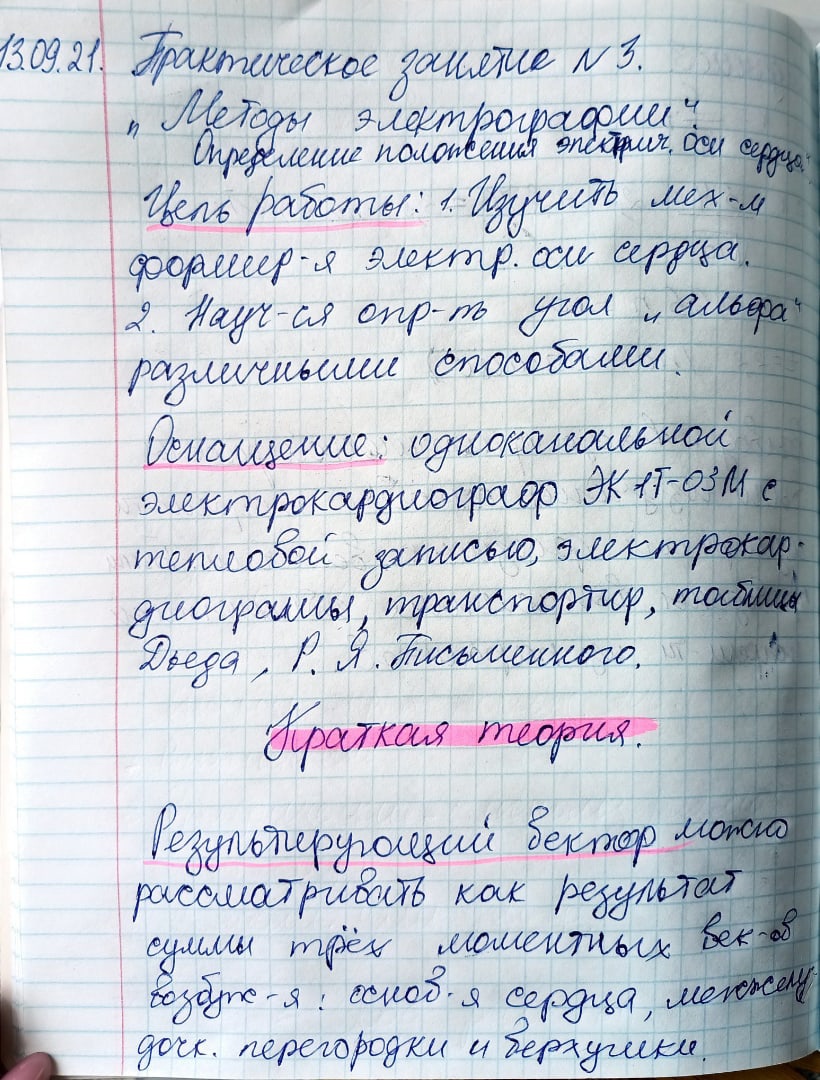 13.09.21. Практическое занятие N 3.
„Методы электрографии“.
Определение положения электрич. оси сердца“
Цель работы: 1. Изучить мех-м
формир-я электр. оси сердца.
2. Науч-ся опр-ть угол „альфа“
различными способами.
Оснащение: одноканальной
электрокардиограф ЭК 1Т-03М с
тепловой записью, электрокар-
диограммы, транспортир, таблицы
Дьеда, Р. Я. Письменного.
Краткая теория.
Результирующий вектор можно
рассматривать как результат
суммы трёх моментных век-ов
возбуж-я: основ-я сердца, межжелу-
дочк. перегородки и верхушки.